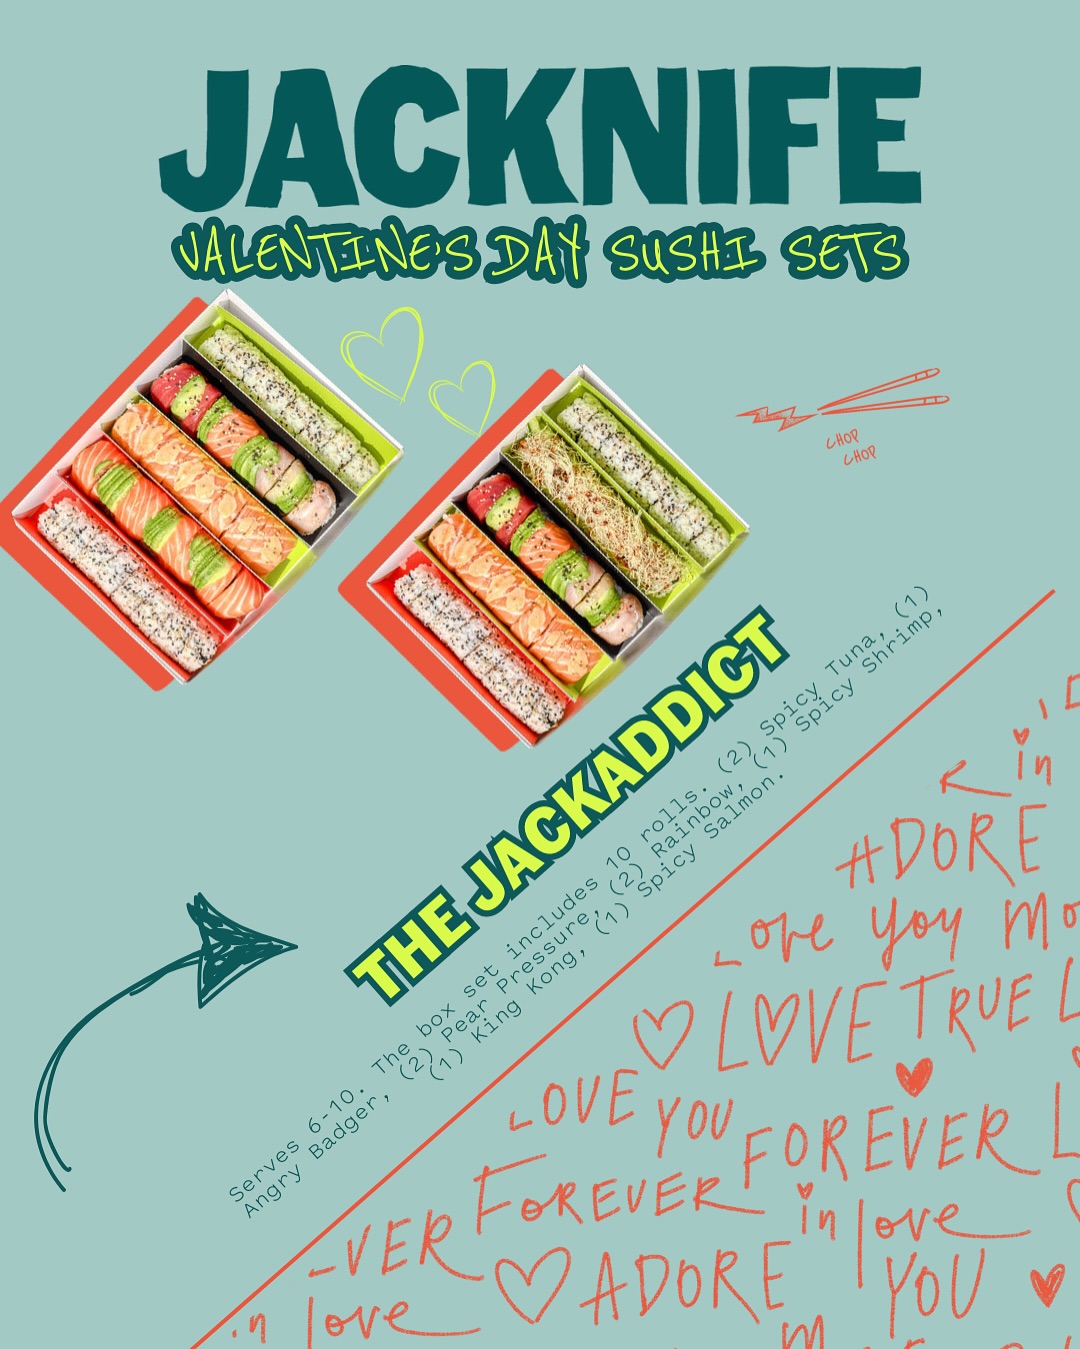 JACKNIFE
VALENTINE'S DAY SUSHI SETS
CHOP
CHOP
THE JACKADDICT
Serves 6-10. The box set includes 10 rolls. (2) Spicy Tuna, (1)
Angry Badger, (2) Pear Pressure, (2) Rainbow, (1) Spicy Shrimp,
(1) King Kong, (1) Spicy Salmon.
in
ADORE
Love you
LOVE TRUE
LOVE YOU
FOREVER
FOREVER in love
VER
ADORE YOU
in love